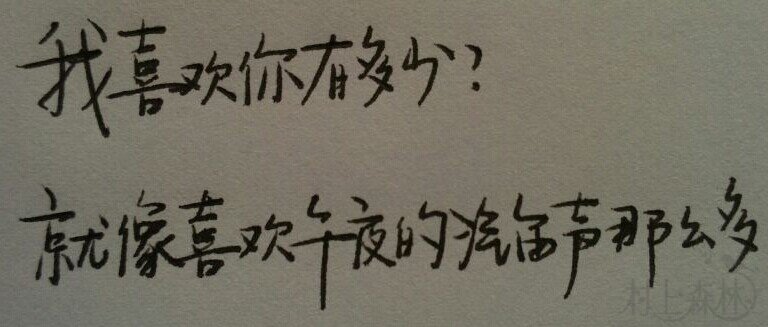 我喜欢你有多少？
就像喜欢午夜的汽笛声那么多
村上森林